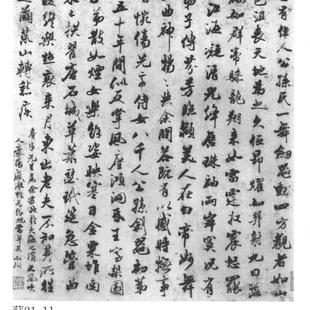 有佳人公孫氏一舞劍器動四方觀者如山
色沮喪天地為之久低昂㸌如羿射九日落
矯如群帝驂龍翔來如雷霆收震怒罷如
江海凝清光絳唇珠袖兩寂寞況有
弟子傳芬芳臨潁美人在白帝妙舞
此曲神揚揚與余問答既有以感時撫事
增惋傷先帝侍女八千人公孫劍器初第一
五十年間似反掌風塵澒洞昏王室梨園
弟子散如煙女樂餘姿映寒日金粟堆南
木已拱瞿唐石城草蕭瑟玳筵急管曲
復終樂極哀來月東出老夫不知其所往
足繭荒山轉愁疾
21-11